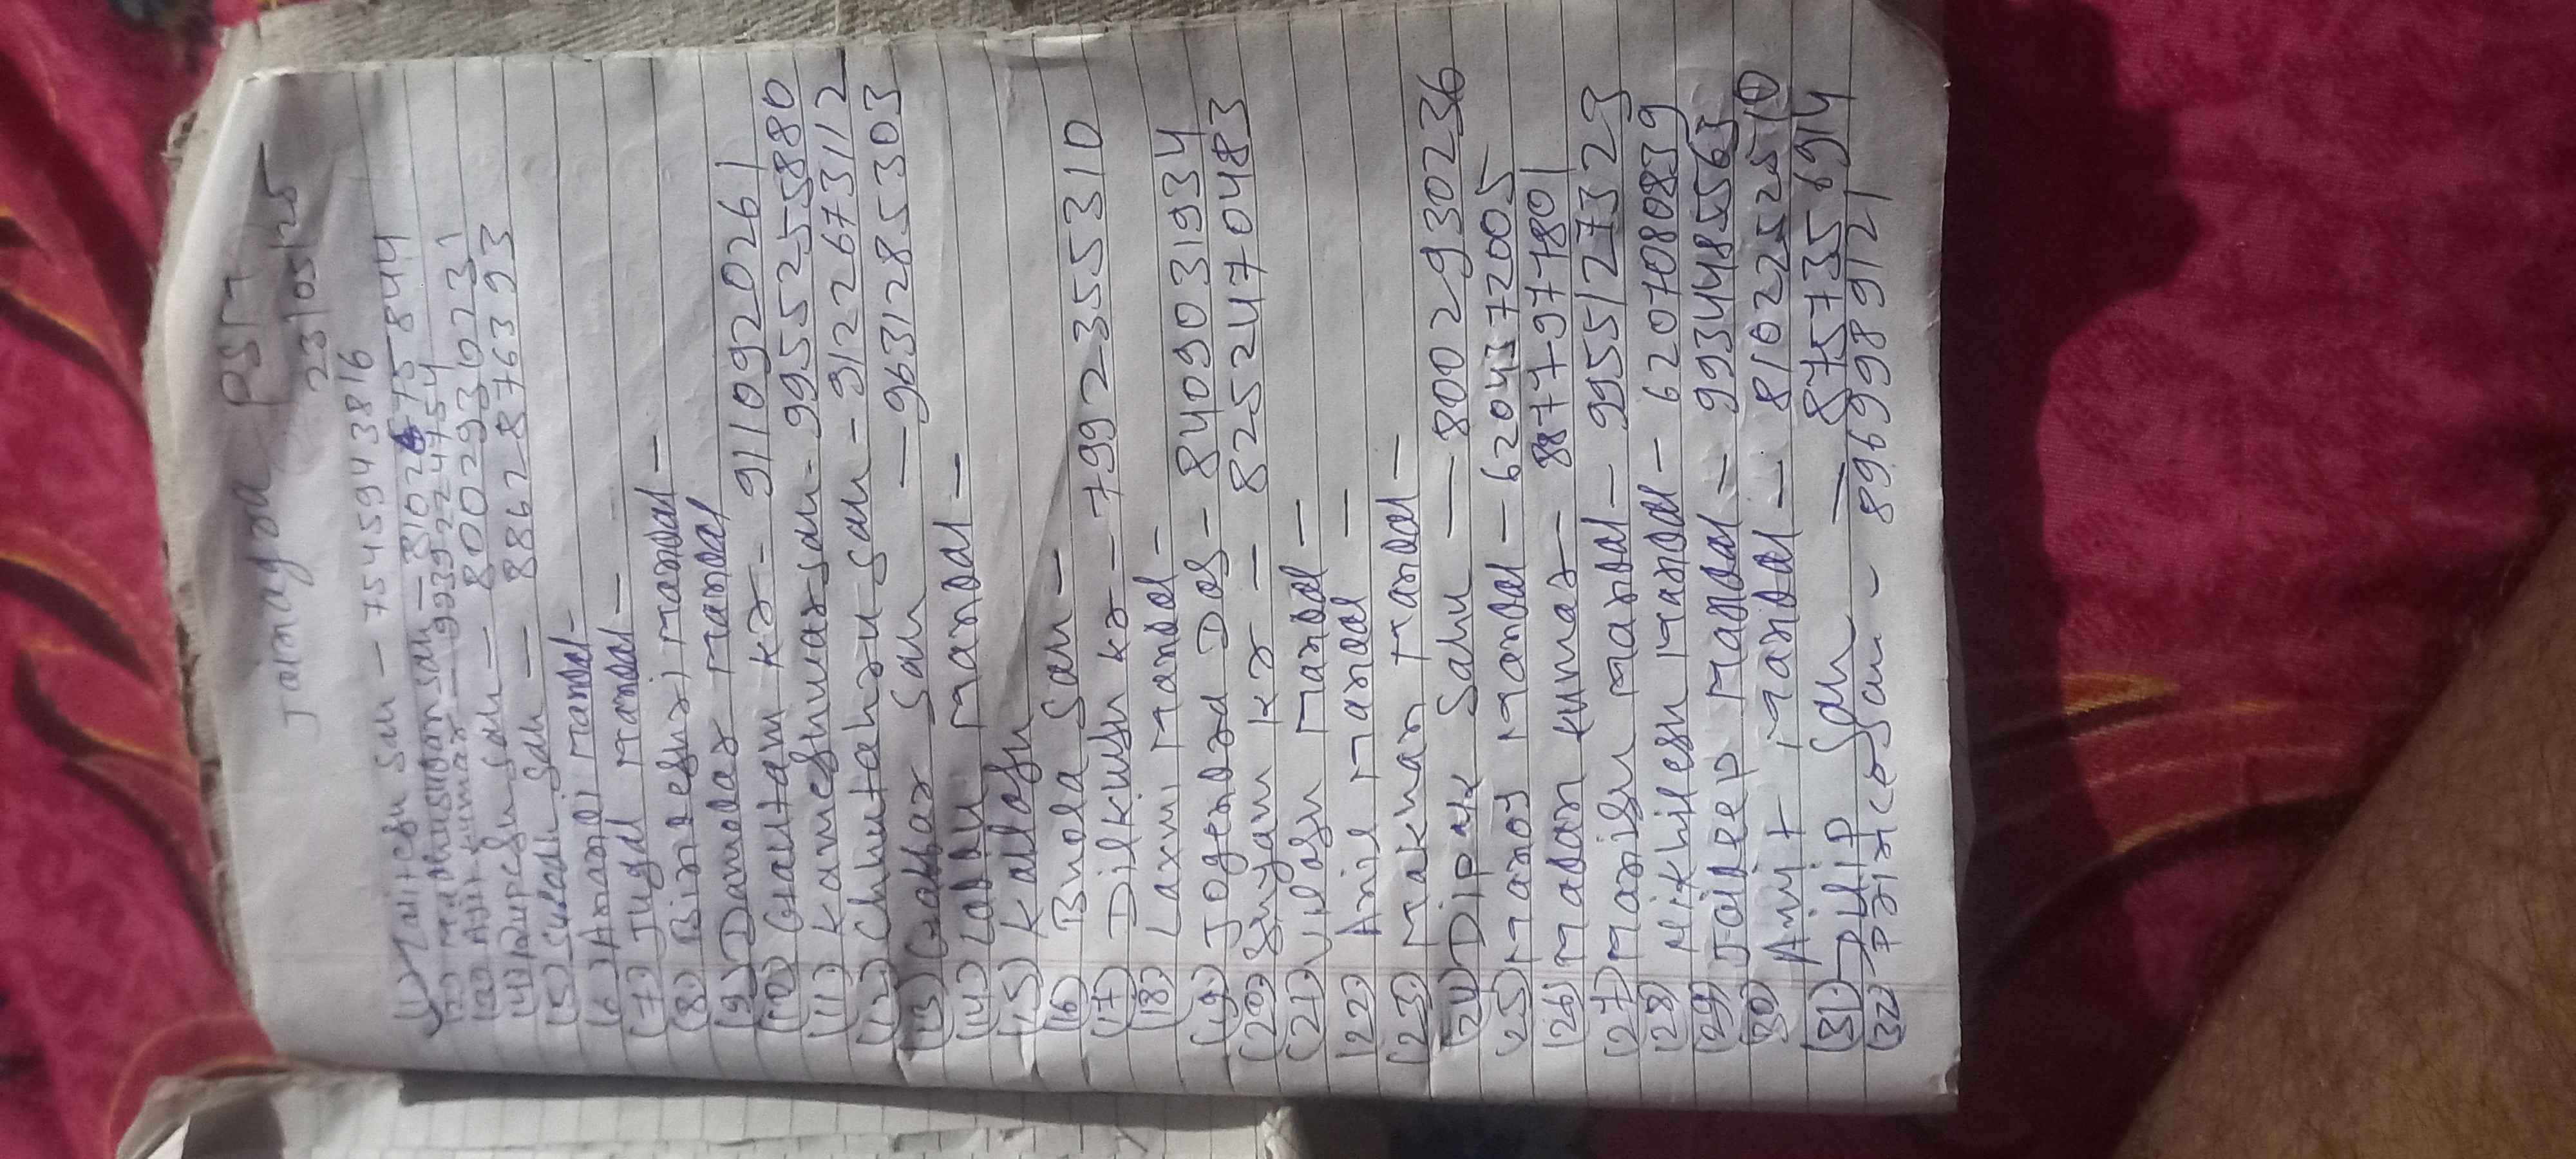 Jamagra PSM
23/05/25
(1) Lalitesh Sah - 7545943816
(2) Madhusudan Sah - 8102675844
(3) Ajit Kumar - 9939224754
(4) Rupesh Sah - 8002930231
(5) Subodh Sah - 8862876393
(6) Anandi Mandal -
(7) Jugal Mandal -
(8) Bindeshri Mandal -
(9) Damodar Mandal
(10) Gautam Kr - 9110920261
(11) Kameshwar Sah - 9955255880
(12) Chhutahru Sah - 9122673112
(13) Gabbar Sah - 9631285303
(14) Laddu Mandal -
(15) Kailash
(16) Bhola Sah -
(17) Dilkush Kr - 7992355310
(18) Laxmi Mandal -
(19) Jogendra Das - 8409031934
(20) Shyam Kr - 8252470483
(21) Vilash Mandal -
(22) Anil Mandal -
(23) Makhan Mandal -
(24) Dipak Sahu - 8002930236
(25) Manoj Mandal - 6204372005
(26) Madan Kumar - 8877977801
(27) Manish Mandal - 9955127329
(28) Nikhilesh Mandal - 6207080839
(29) Jaideep Mandal - 9934485563
(30) Amit Mandal - 8102252510
(31) Dilip Sah - 8757356914
(32) Prince Sah - 8969989121